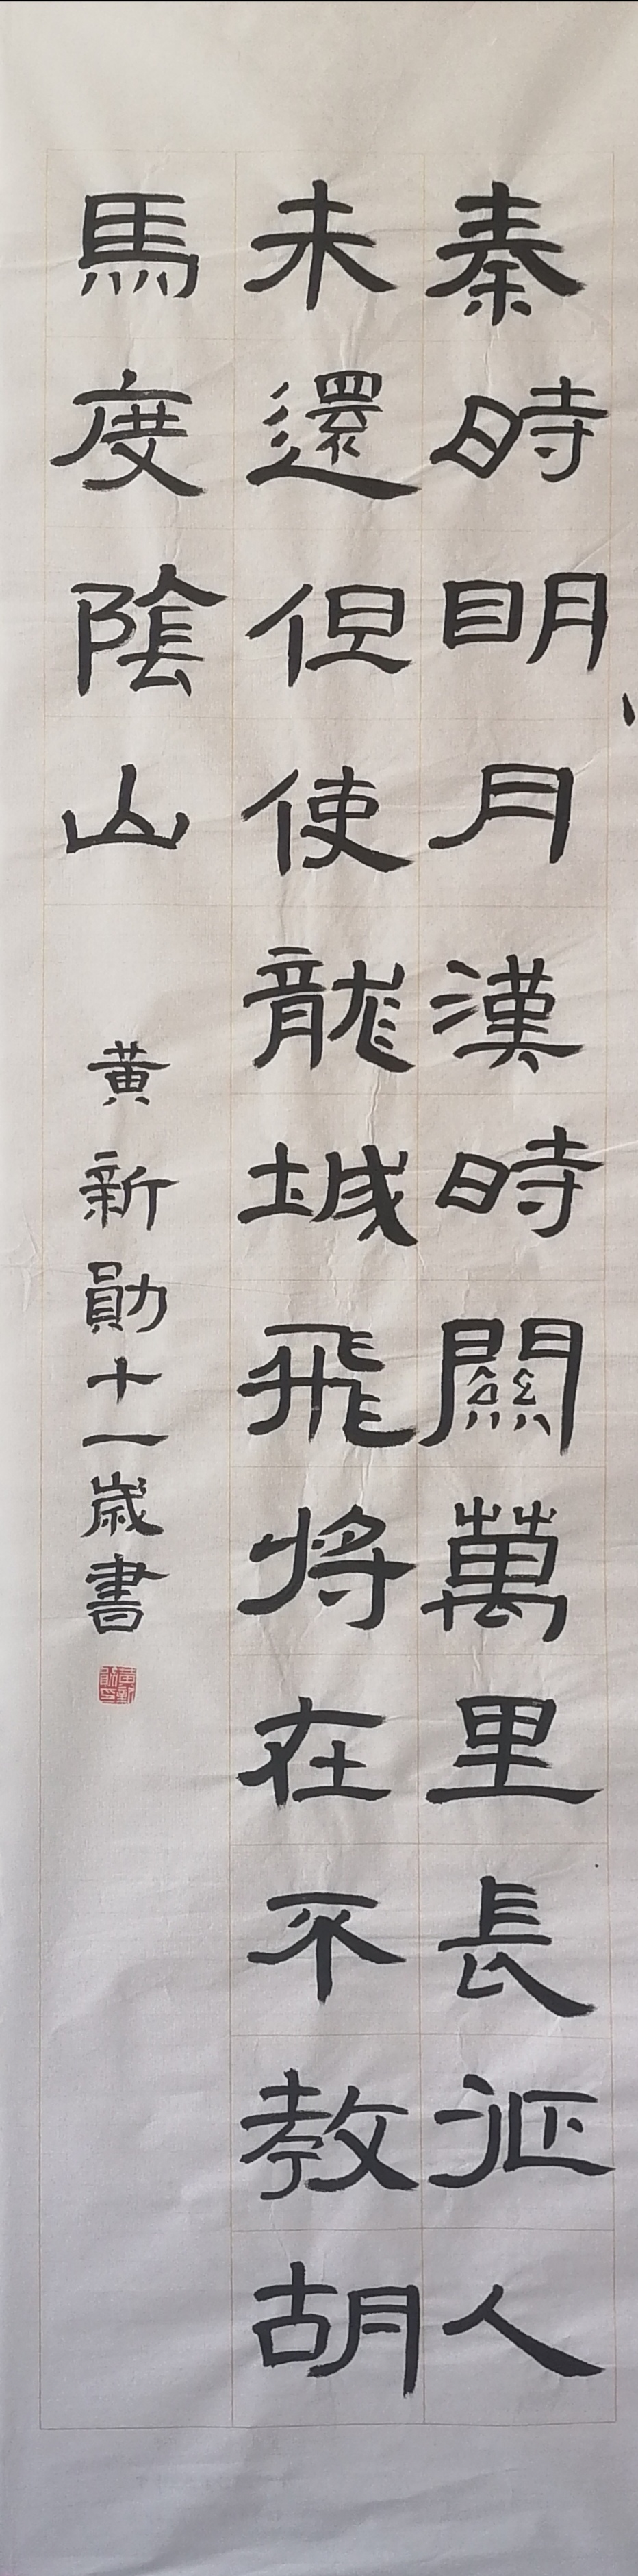 秦時明月漢時關萬里長征人
未還但使龍城飛將在不教胡
馬度陰山
黄新勛十一歲書